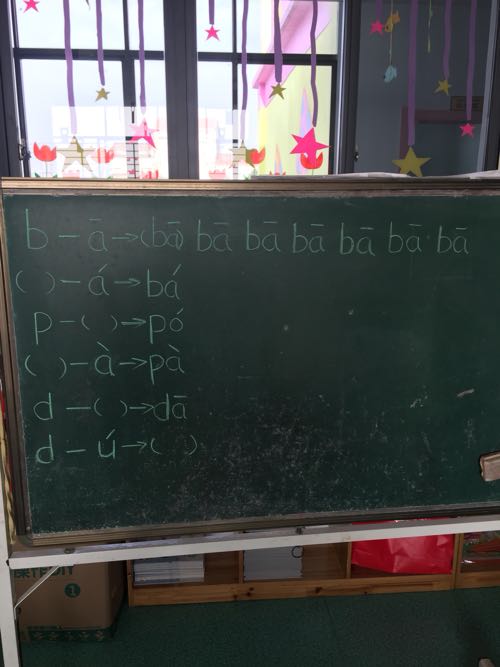 b - ā → (bā) bā bā bā bā bā bā
( ) - á → bá
p - ( ) → pó
( ) - à → pà
d - ( ) → dā
d - ú → ( )